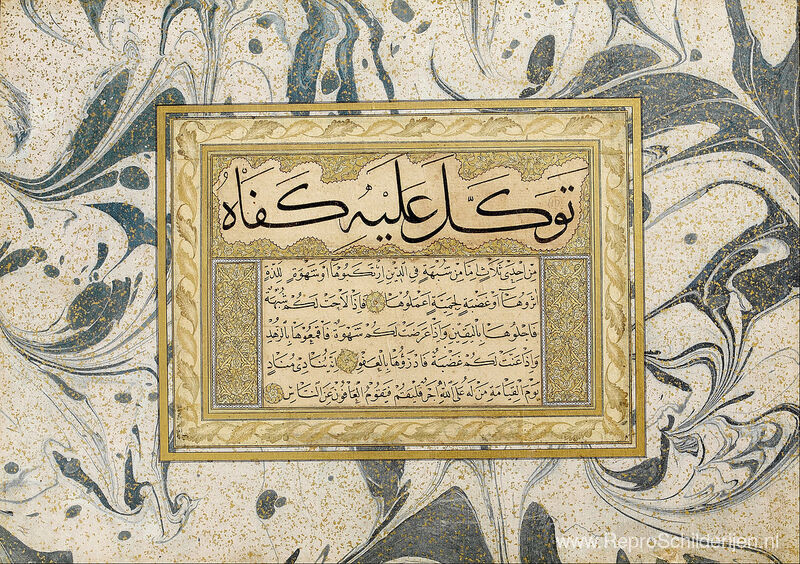 تَوَكَّلَ عَلَيْهِ كَفَاهُ
مِنْ اِحْدَى ثَلَاثٍ اِمَّا مِنْ شُبْهَةٍ فِى الدِّينِ ارْتَكَبُوهَا اَوْ شَهْوَةٍ لِلَذَّةٍ
اٰثَرُوهَا اَوْ غَضْبَةٍ لِحَمِيَّةٍ اَعْمَلُوهَا فَاِذَا لَاحَتْ لَكُمْ شُبْهَةٌ
فَاجْلُوهَا بِالْيَقِينِ وَاِذَا عَرَضَتْ لَكُمْ شَهْوَةٌ فَاقْمَعُوهَا بِالزُّهْدِ
وَاِذَا عَنَتْ لَكُمْ غَضْبَةٌ فَادْرَؤُهَا بِالْعَفْوِ يُنَادِى مُنَادٍ
يَوْمَ الْقِيَامَةِ مَنْ لَهُ عَلَى اللّٰهِ اَجْرٌ فَلْيَقُمْ فَيَقُومُ الْعَافُونَ عَنِ النَّاسِ
www.ReproSchilderijen.nl